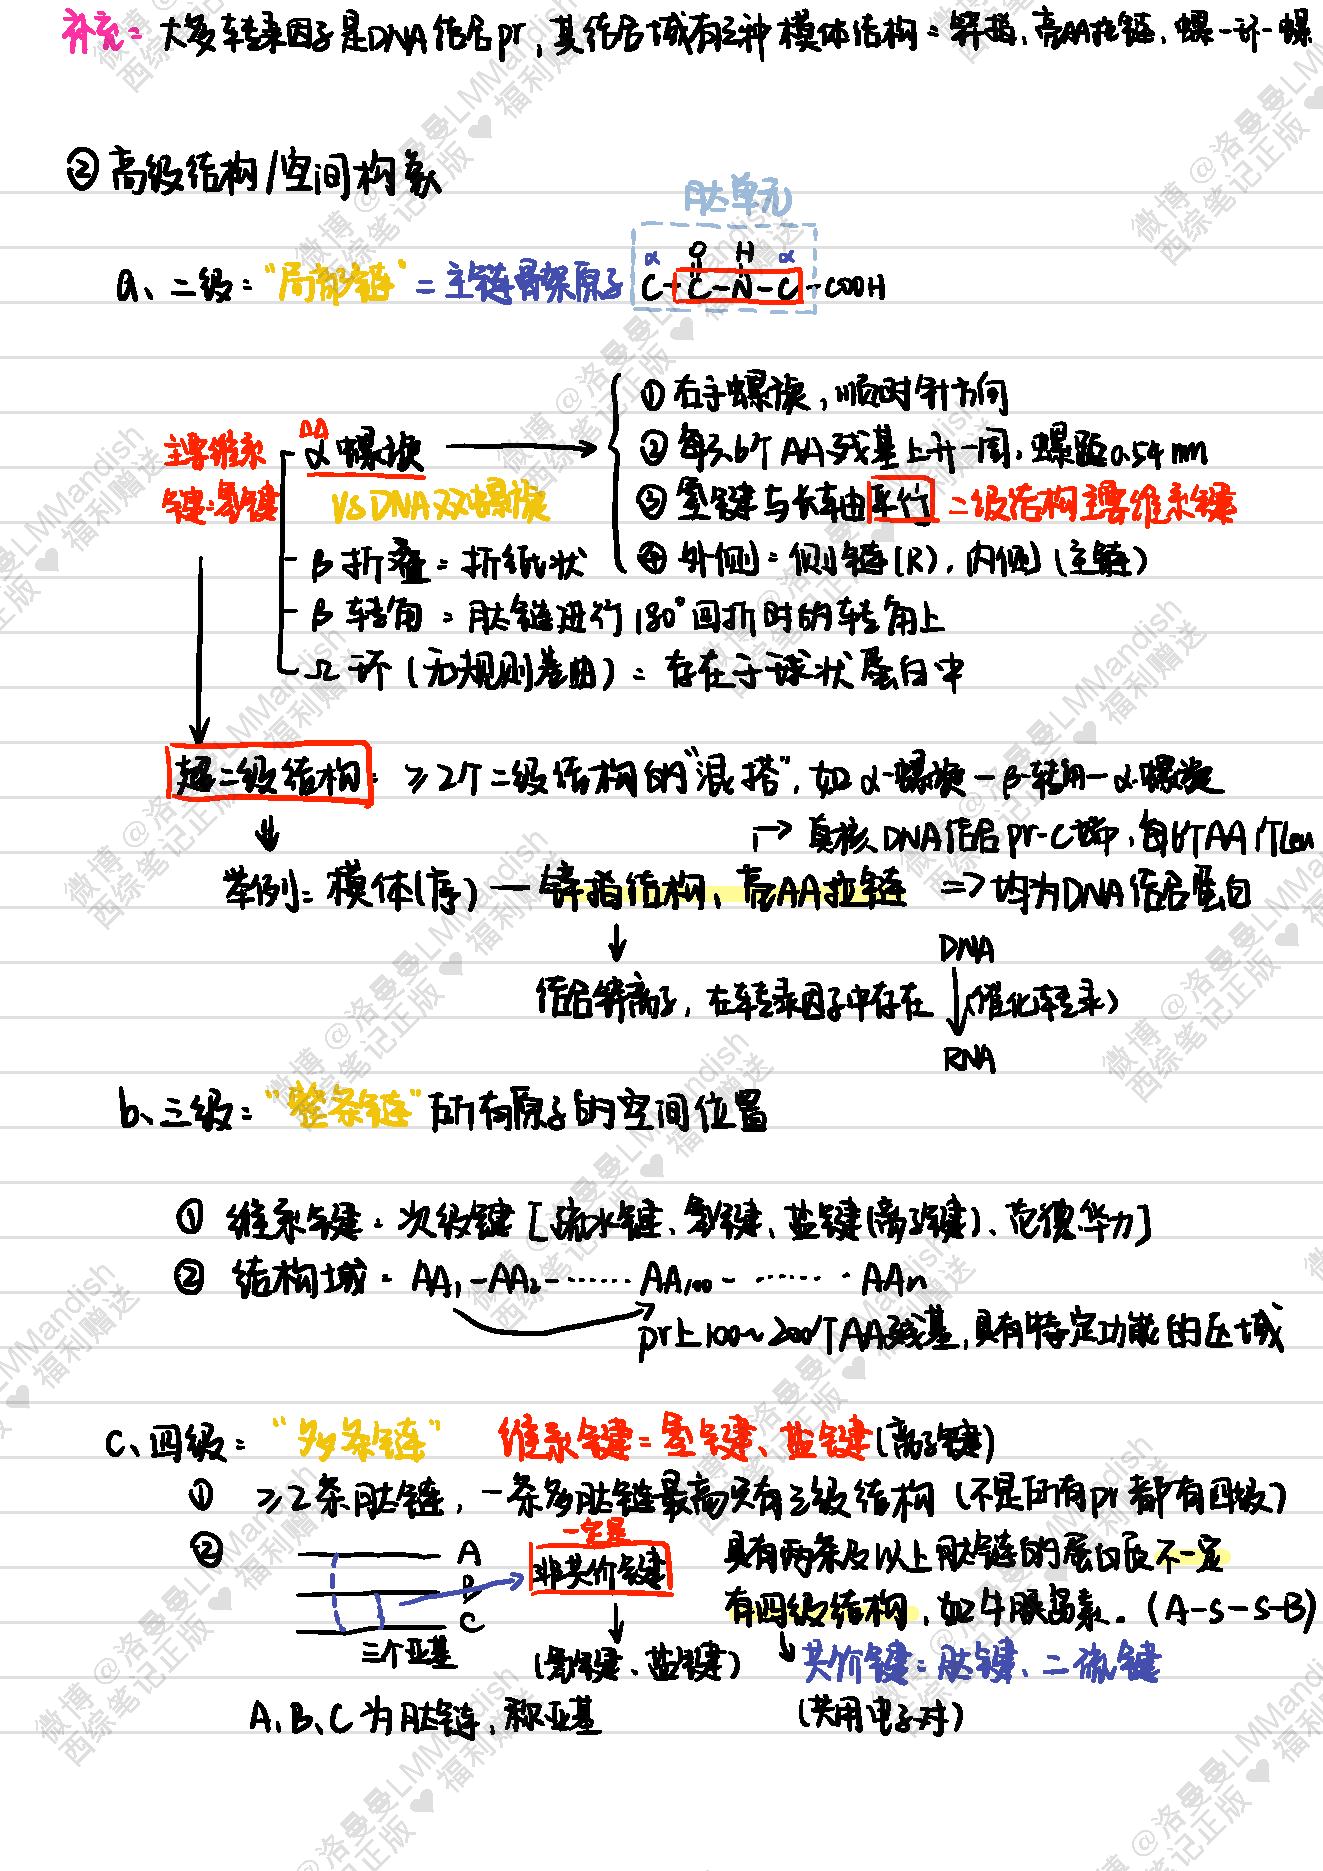 补充：大多转录因子是DNA结合pr，其结合域有三种模体结构：锌指、亮AA拉链、螺-环-螺
②高级结构/空间构象
肽单元
a、二级："局部链"：主链骨架原子
O H
α α
C-C-N-C-COOH
①右手螺旋，顺时针方向
主要维系 △△ α螺旋 ②每3.6个AA残基上升一周，螺距0.54nm
键：氢键 VS DNA双螺旋 ③氢键与长轴平行 二级结构主要维系键
β折叠：折纸状 ④外侧：侧链(R)、内侧(主链)
β转角：肽链进行180°回折时的转角上
Ω环(无规则卷曲)：存在于球状蛋白中
超二级结构：≥2个二级结构的"混搭"，如α-螺旋-β-转角-α-螺旋
真核DNA结合pr-C端，每6个AA1个Leu
举例：模体(序)—锌指结构、亮AA拉链 => 均为DNA结合蛋白
结合锌离子，在转录因子中存在
DNA
(催化转录)
RNA
b、三级："整条链"所有原子的空间位置
①维系键：次级键[疏水键、氢键、盐键(离子键)、范德华力]
②结构域：AA₁-AA₂-……AA₁₀₀-……·AAn
pr上100~200个AA残基，具有特定功能的区域
c、四级："多条链" 维系键：氢键、盐键(离子键)
①≥2条肽链，一条多肽链最高只有三级结构(不是所有pr都有四级)
② A 一定是
B 非共价键 具有两条及以上肽链的蛋白质不一定
C 有四级结构，如牛胰岛素。(A-S-S-B)
三个亚基 (氢键、盐键) 共价键：肽键、二硫键
A、B、C为肽链，称亚基 (共用电子对)
微博@洛曼曼LMMandish
西综笔记正版♥福利赠送